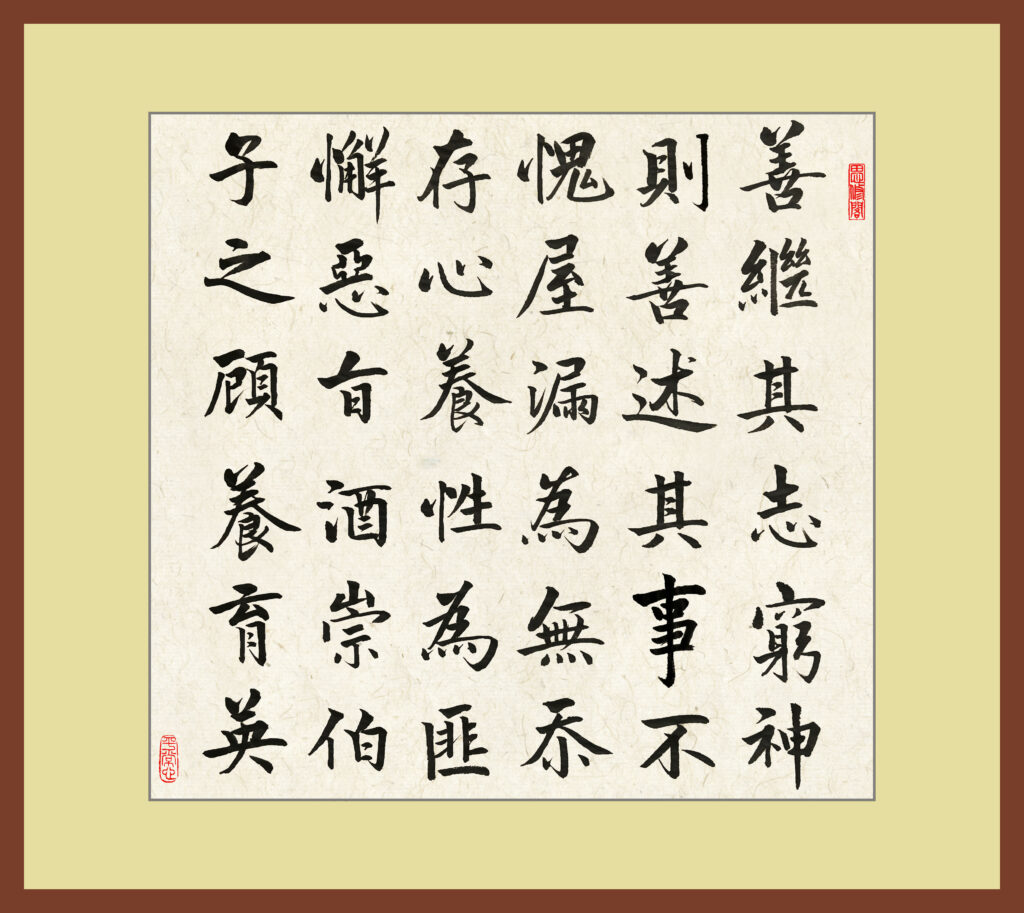 思修閣
善繼其志窮神
則善述其事不
愧屋漏為無忝
存心養性為匪
懈惡旨酒崇伯
子之顧養育英
平常心